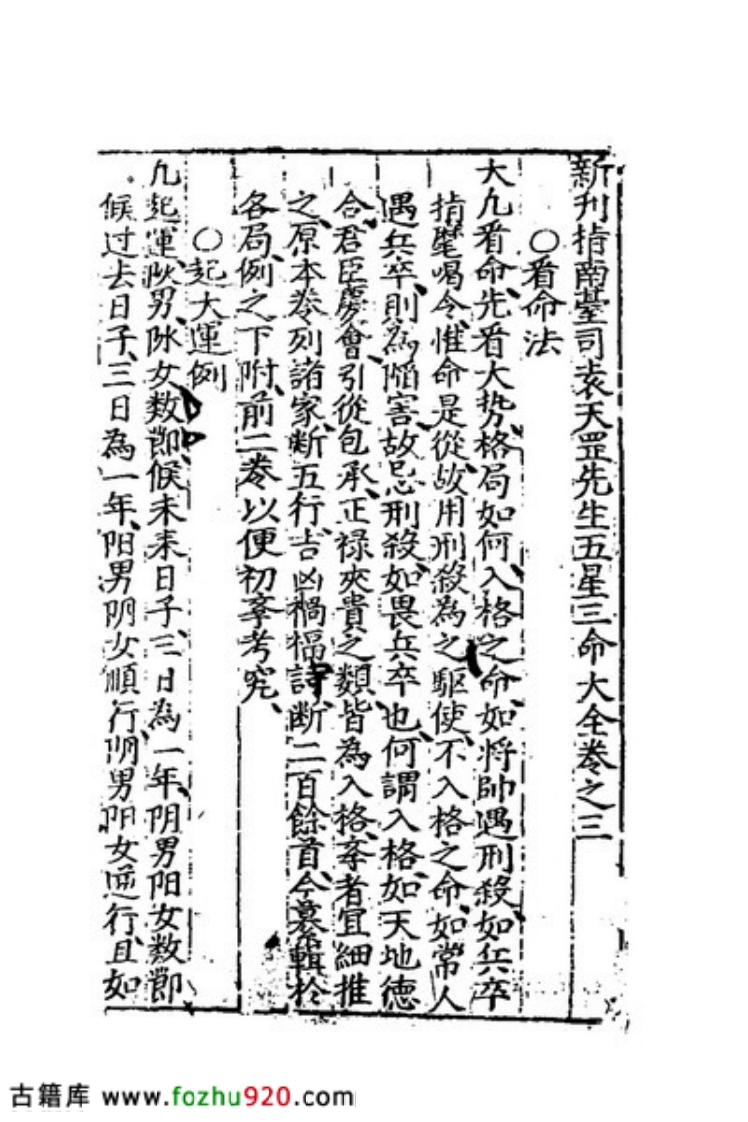 新刊指南臺司袁天罡先生五星三命大全卷之三
○看命法
大凡看命、先看大势、格局如何、入格之命、如将帥遇刑殺、如兵卒
指麾喝令、惟命是從、故用刑殺為之驅使、不入格之命、如常人
遇兵卒、則為陷害、故忌刑殺、如畏兵卒也、何謂入格、如天地德
合、君臣慶會、引從包承、正禄夾貴之類、皆為入格、李者宜細推
之、原本卷列諸家、断五行、吉凶禍福詩、断二百餘首、今纂輯於
各局、例之下附、前二卷以便初李考究、
○起大運例
凡起運、阦男、阥女数節候未来日子、三日為一年、阴男阳女数節
候过去日子、三日為一年、阳男阴女順行、阴男阳女逆行、且如
古籍库 www.fozhu920.com